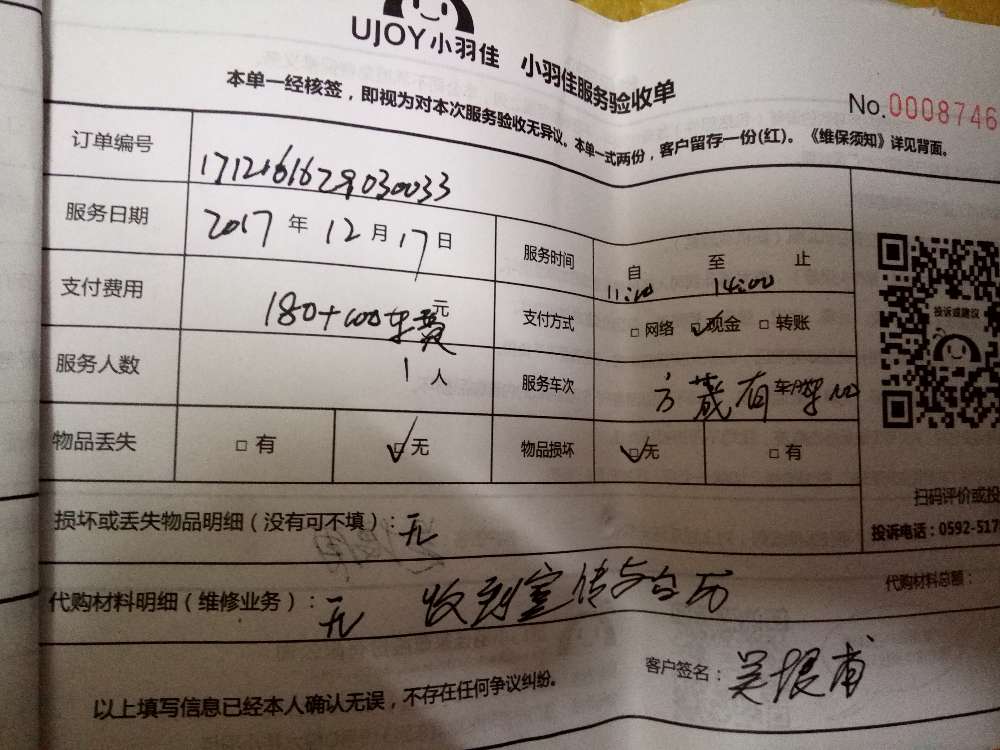 UJOY小羽佳 小羽佳服务验收单
No.0008746
本单一经核签，即视为对本次服务验收无异议。本单一式两份，客户留存一份(红)。《维保须知》详见背面。
订单编号 1712161629030033
服务日期 2017年12月17日 服务时间 自11:00至14:00止
支付费用 180+100车费元 支付方式 □网络 ☑现金 □转账
投诉或建议
服务人数 1人 服务车次
物品丢失 □有 ☑无 物品损坏 ☑无 □有
扫码评价或投
损坏或丢失物品明细（没有可不填）：无
投诉电话：0592-517
代购材料明细（维修业务）：无 收到宣传与台历
代购材料总额：
客户签名：吴振甫
以上填写信息已经本人确认无误，不存在任何争议纠纷。